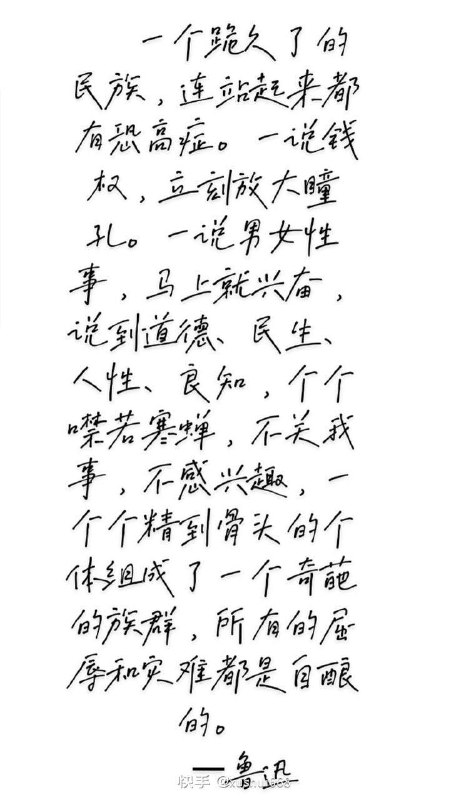 一个跪久了的
民族，连站起来都
有恐高症。一说钱
权，立刻放大瞳
孔。一说男女性
事，马上就兴奋，
说到道德、民生、
人性、良知，个个
噤若寒蝉，不关我
事，不感兴趣，一
个个精到骨头的个
体组成了一个奇葩
的族群，所有的屈
辱和灾难都是自酿
的。
——鲁迅
快手